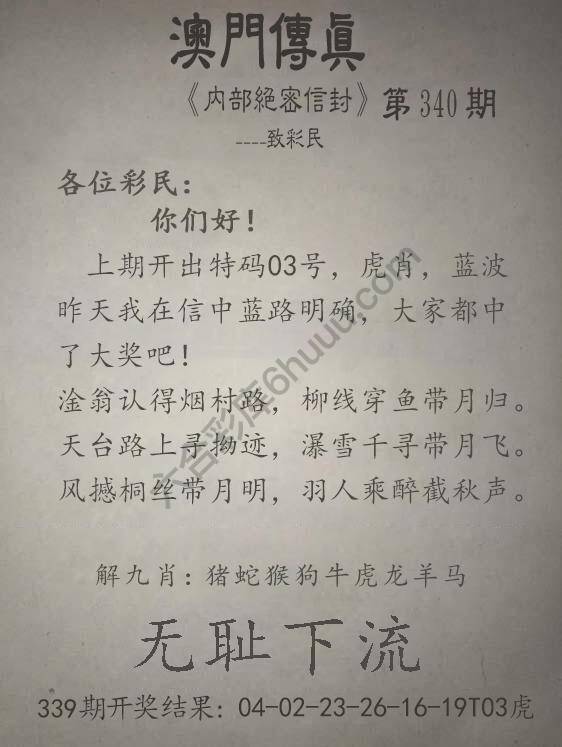 澳門傳眞
《内部絕密信封》第340期
----致彩民
各位彩民：
你们好！
上期开出特码03号，虎肖，蓝波
昨天我在信中蓝路明确，大家都中
了大奖吧！
淦翁认得烟村路，柳线穿鱼带月归。
天台路上寻拗迹，瀑雪千寻带月飞。
风撼桐丝带月明，羽人乘醉截秋声。
六合彩库6huuu.com
解九肖：猪蛇猴狗牛虎龙羊马
无耻下流
339期开奖结果：04-02-23-26-16-19T03虎